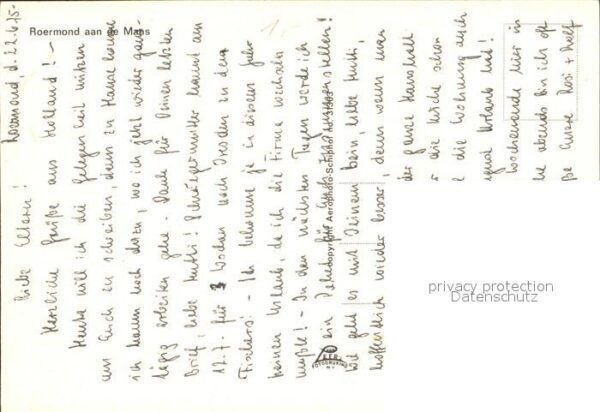 Roermond aan de Maas
Roermond, d. 22.6.75.
Liebe Eltern!
Herzliche Grüße aus Holland! -
Heute will ich die Gelegenheit nützen
um Euch zu schreiben, denn zu Hause komme
ich kaum noch dazu, wo ich jetzt wieder ganz-
tägig arbeiten gehe. Danke für Deinen letzten
Brief, liebe Mutti! Schwiegermutter kommt am
12.7. für 3 Wochen nach Dresden zu den
Fischers! - Ich bekomme ja in diesem Jahr
keinen Urlaub, da ich die Firma wechseln
mußte! - In den nächsten Tagen werde ich
ein Paket für Euch
Wie geht es mit Deinem Bein, liebe Mutti,
hoffentlich wieder besser, denn wenn man
der ganze Haushalt
die Küche schon
die Wohnung auch
Urlaub mit!
Wochenende hier in
abends bin ich oft
Eure Rosi + Rolf
copyright Aerophoto-Schiphol
FOTODRUKINDO
privacy protection
Datenschutz